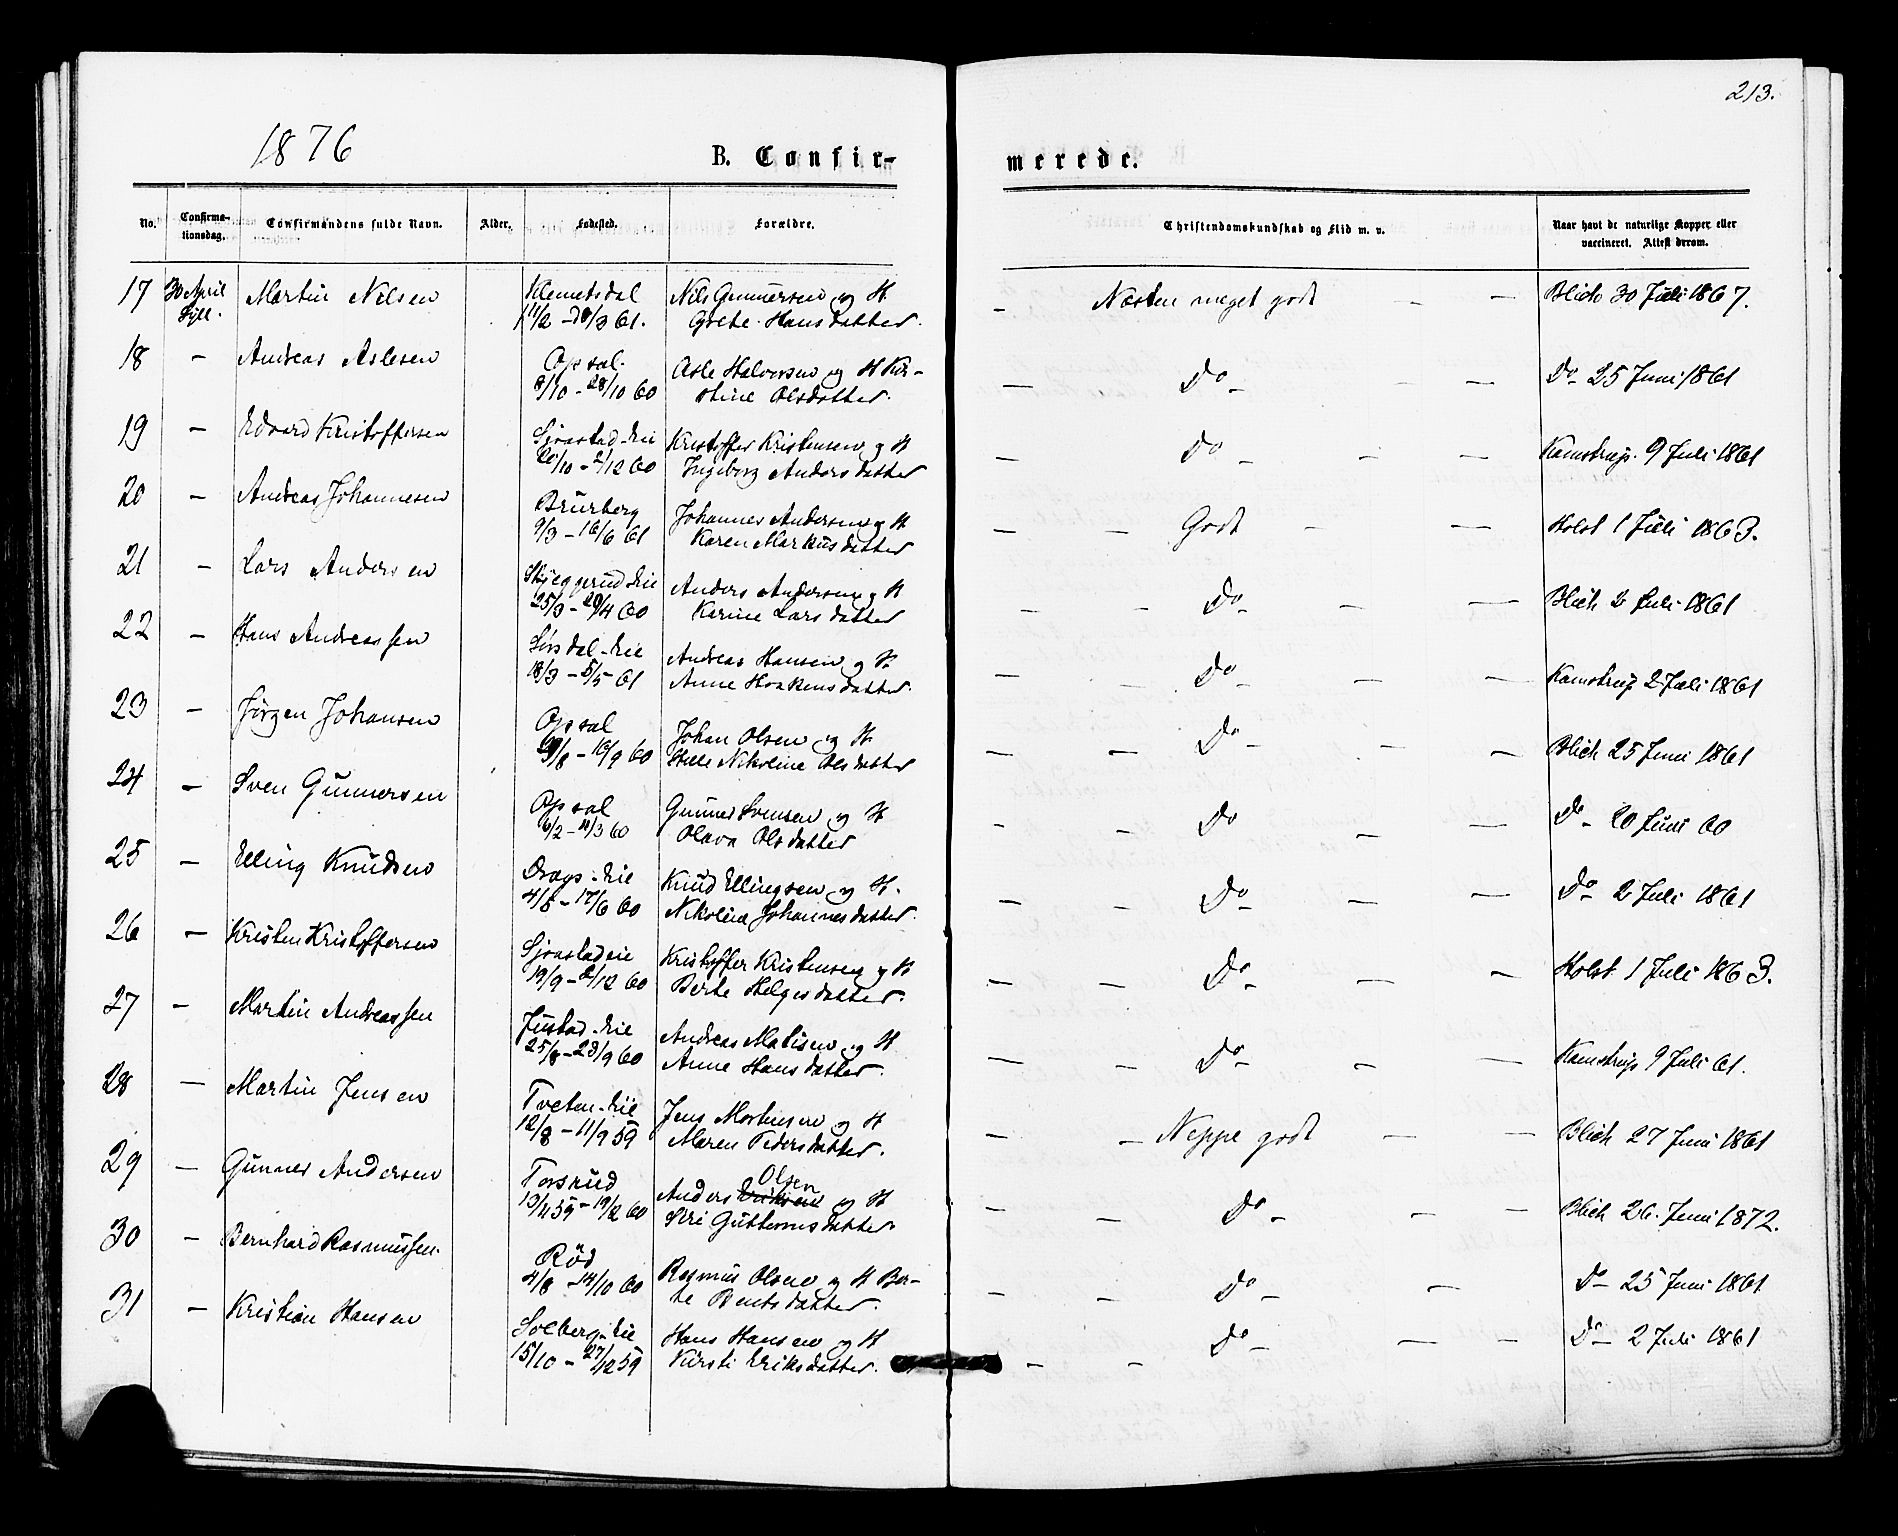 213.
1876
B. Confir- merede.
No. Confirma- tionsdag. Confirmandens fulde Navn. Alder. Fødested. Forældre. Christendomskundskab og Flid m. v. Naar havt de naturlige Kopper eller vaccineret. Attest derom.
17 30 April Martin Nilsen Klemetsdal Nils Gunnersen og H — Næsten meget godt — — Blich 30 Juli 1867.
11/2 – 61. Grete Hansdatter.
18 — Andreas Aslesen Opsal. Asle Halvorsen og H Kir- — Do — — — Do 25 Juni 1861
8/10 – 28/10 60 stine Olsdatter.
19 — Edvard Kristoffersen Sjaastad-eie Kristoffer Kristensen og H — Do — — — Kamstrup. 9 Juli 1861
20/10 – 2/12 60 Ingeborg Andersdatter
20 — Andreas Johannesen Brurberg Johannes Andersen og H — — Godt — — Holst 1 Juli 1863.
9/3 – 16/6 61 Karen Markusdatter
21 — Lars Andersen Skjeggerud eie Anders Andersen og H — — Do — — — Blich 2 Juli 1861
25/3 – 29/4 60 Karine Larsdatter
22 — Hans Andreassen Sørsdal-eie Andreas Hansen og H. — — Do — — — Kamstrup 2 Juli 1861
18/3 – 5/5 61 Anne Haakensdatter.
23 — Jørgen Johansen Opsal Johan Olsen og H. — — Do — — — Blich 25 Juni 1861
/8 – 16/9 60 Helle Nikoline Olsdatter
24 — Sven Gunnersen Opsal Gunner Svensen og H — — Do — — Do 20 Juni 60
6/2 – 11/3 60 Olava Olsdatter
25 — Elling Knudsen Drags-eie Knud Ellingsen og H. — — Do — — — Do 2 Juli 1861
4/5 – 17/6 60 Nikoline Johannesdatter.
26 — Kristen Kristoffersen Sjaastadeie Kristoffer Kristensen og H — — Do — — — Holst 1 Juli 1863.
19/9 – 2/12 60 Berte Helgesdatter.
27 — Martin Andreassen Justad-eie Andreas Matisen og H — — Do — — — Kamstrup 9 Juli 61.
25/8 – 23/9 60 Anne Hansdatter.
28 — Martin Jensen Tveten-eie Jens Mortensen og H — — Neppe godt — — Blich 27 Juni 1861
12/8 – 11/9 59 Maren Pedersdatter.
29 — Gunner Andersen Torsrud Anders Olsen og H — — Do — — — Blich 26. Juni 1872.
13/11 59 – 19/2 60 Siri Guttormsdatter
30 — Bernhard Rasmussen. Rød Rasmus Olsen og H Ber- — — Do — — Do 25 Juni 1861
4/8 – 14/10 60 te Bentsdatter.
31 — Kristian Hansen Solberg-eie Hans Hansen og H — — Do — — — Do 2 Juli 1861
15/10 – 27/12 59 Kirsti Eriksdatter.